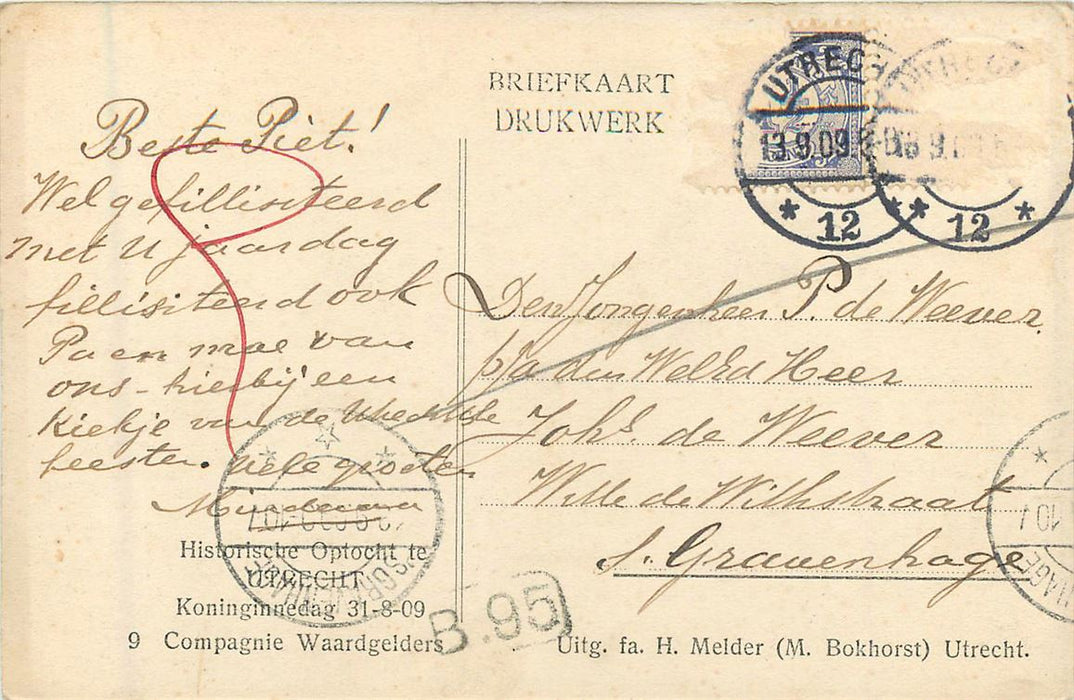 BRIEFKAART
DRUKWERK
UTRECHT
13.9.09
12
12
Beste Piet!
Wel gefillisiteerd
met u jaardag
fillisiteerd ook
Pa en moe van
ons - hierbij een
Kiekje van de Utrechtse
feesten. vele groeten
Den Jongenheer P. de Weever
p/a den WelEd Heer
Johs. de Weever
Witte de Withstraat
s. Gravenhage
Historische Optocht te
UTRECHT
Koninginnedag 31-8-09
9 Compagnie Waardgelders
B.95
Uitg. fa. H. Melder (M. Bokhorst) Utrecht.